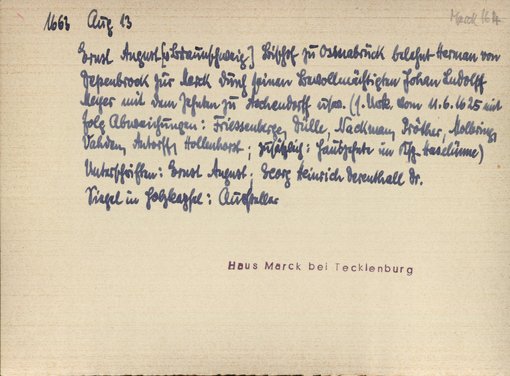 1663 Aug 13
Marck 164
Ernst August [v. Braunschweig] Bischof zu Osnabrück belehnt Herman von
Diepenbrock zur Marck durch seinen Bevollmächtigten Johan Ludolff
Meyer mit dem Zehnten zu Aschendorff usw. (s. Urk. vom 11.6.1625 mit
folg Abweichungen: Friessenberg, Dülle, Nackman, Dröther, Molbring,
Vahden, Antorff, Hollenhorst; zusätzlich: Hautzehnte im Ksp. Haselünne)
Unterschriften: Ernst August. Georg Heinrich Derenthall Dr.
Siegel in Holzkapsel: Aussteller
Haus Marck bei Tecklenburg